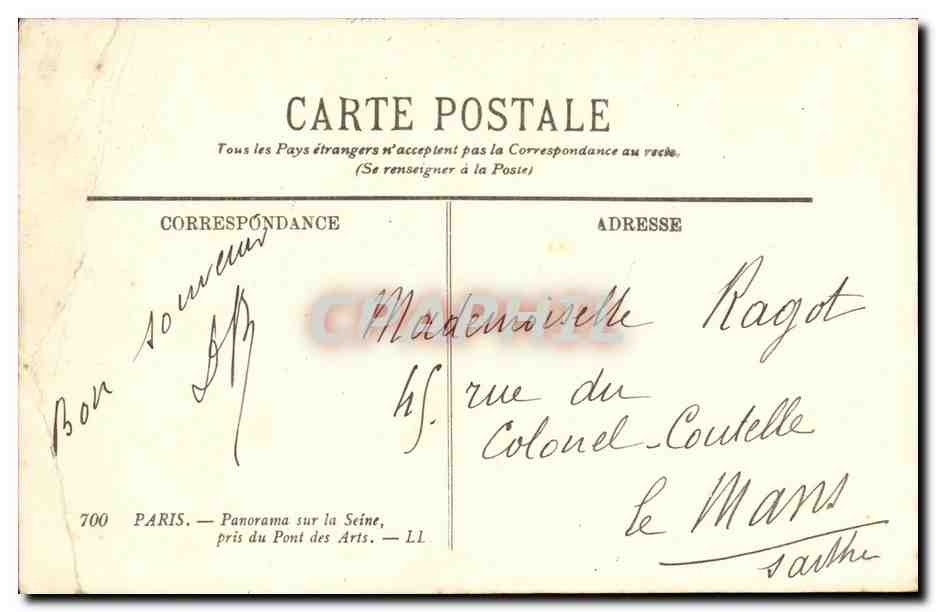 CARTE POSTALE
Tous les Pays étrangers n'acceptent pas la Correspondance au recto.
(Se renseigner à la Poste)
CORRESPONDANCE
ADRESSE
Bon souvenir
DB
Mademoiselle Ragot
45. rue du
Colonel-Coutelle
le Mans
Sarthe
700 PARIS. — Panorama sur la Seine,
pris du Pont des Arts. — LL
CPAPHIL